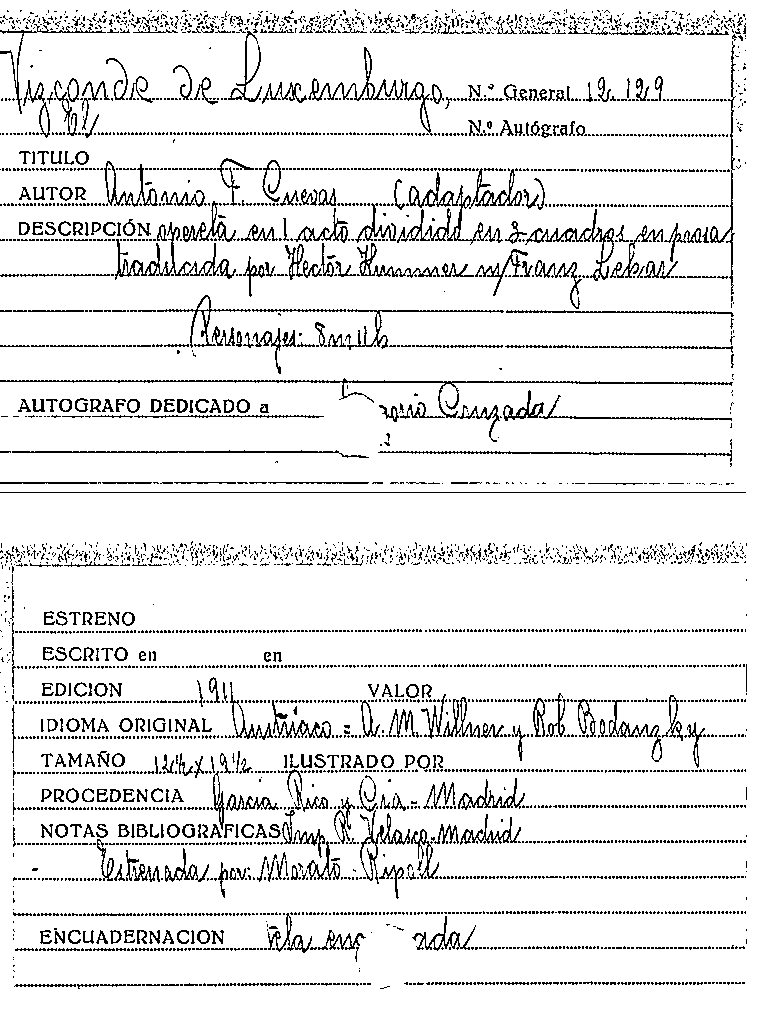 Vizconde de Luxemburgo, N.º General 12.129
El N.º Autógrafo
TITULO
AUTOR Antonio F. Cuevas (adaptador)
DESCRIPCIÓN opereta en 1 acto dividido en 3 cuadros en prosa
traducida por Hector Hummer m/ Franz Lehar
Personajes: 8m 11h
AUTOGRAFO DEDICADO a Cruzada
ESTRENO
ESCRITO en en
EDICION 1911 VALOR
IDIOMA ORIGINAL Austriaco = A. M. Willner y Rob Bodanzky
TAMAÑO 12½ x 19½ ILUSTRADO POR
PROCEDENCIA Garcia Rico y Cia - Madrid
NOTAS BIBLIOGRAFICAS Imp. R. Velasco. Madrid
Estrenada por: Morató - Ripoll
ENCUADERNACION tela